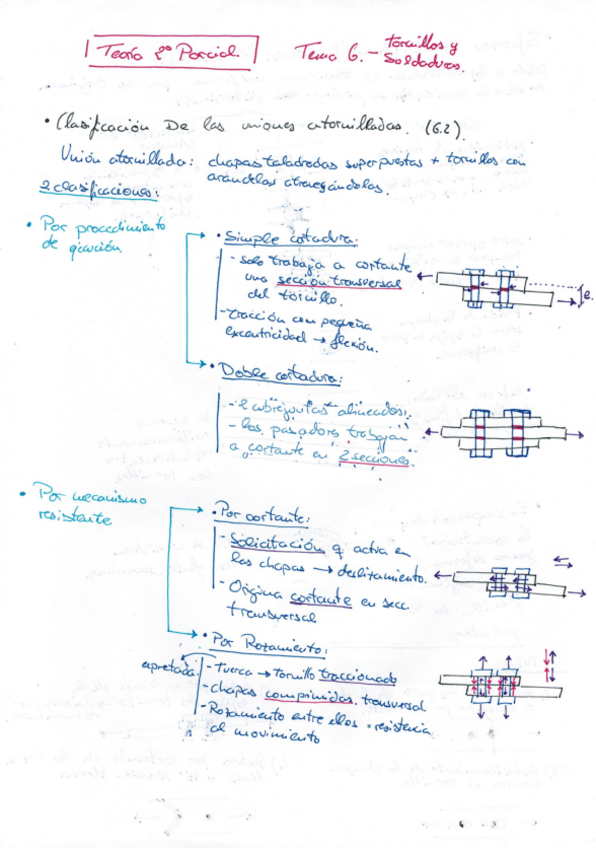 Teoría 2º Parcial. Tema 6.- Tornillos y
Soldaduras.
• Clasificación De las uniones atornilladas. (6.2).
Unión atornillada: chapas taladradas superpuestas + tornillos con
arandelas atravesándolas.
2 clasificaciones:
• Por procedimiento
de
• Simple cortadura:
- solo trabaja a cortante
una sección transversal
del tornillo.
- tracción con pequeña
excentricidad → flexión.
e.
• Doble cortadura:
- 2 cubrejuntas alineados.
- los pasadores trabajan
a cortante en 2 secciones.
• Por mecanismo
resistente
• Por cortante:
- Solicitación q activa en
las chapas → deslizamiento.
- Origina cortante en secc
transversal
• Por Rozamiento:
apretada
- Tuerca → Tornillo traccionado
- chapas comprimidas transversal
- Rozamiento entre ellos = resistencia
al movimiento